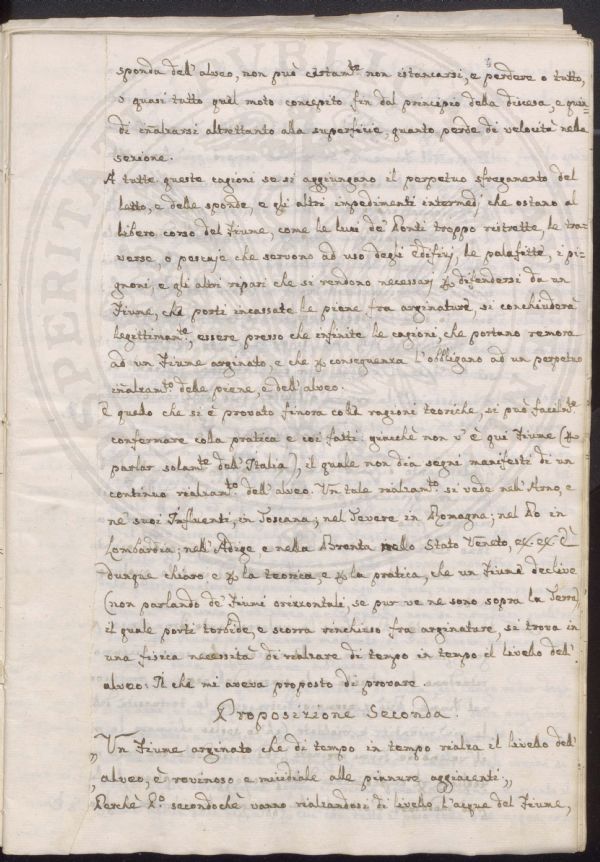 sponda dell'alveo, non può certam.te non istancarsi, e perdere o tutto,
o quasi tutto quel moto concepito fin dal principio della discesa, e quin=
di inalzarsi altrettanto alla superficie, quanto perde di velocità nella
sezione.
A tutte queste cagioni se si aggiungano il perpetuo sfregamento del
letto, e delle sponde, e gli altri impedimenti intermedj che ostano al
libero corso del Fiume, come le luci de' Ponti troppo ristrette, le tra=
verse, o pescaje che servono ad uso degli edifizj, le palafitte, i pi=
gnoni, e gli altri ripari che si rendono necessarj p difendersi da un
Fiume, che porti incassate le piene fra arginature, si conchiuderà
legittimam.te, essere presso che infinite le cagioni, che portano remora
ad un Fiume arginato, e che p conseguenza l'obbligano ad un perpetuo
inalzam.to delle piene, e dell'alveo.
E quello che si è provato finora colle ragioni teoriche, si può facilm.te
confermare colla pratica e coi fatti: giacchè non v'è qui Fiume (p
parlar solam.te dell'Italia), il quale non dia segni manifesti di un
continuo rialzam.to dell'alveo. Un tale rialzam.to si vede nell'Arno, e
ne' suoi Influenti, in Toscana; nel Tevere in Romagna; nel Po in
Lombardia; nell'Adige e nella Brenta nello Stato Veneto, &c. &c. È
dunque chiaro, e p la teorica, e p la pratica, che un Fiume declive
(non parlando de' Fiumi orizzontali, se pur ve ne sono sopra la Terra),
il quale porti torbide, e scorra rinchiuso fra arginature, si trova in
una fisica necessità di rialzare di tempo in tempo il livello dell'
alveo: Il che mi aveva proposto di provare.
Proposizione Seconda.
„Un Fiume arginato che di tempo in tempo rialza il livello dell'
„alveo, è rovinoso e micidiale alle pianure aggiacenti„
Perchè P.o secondochè vanno rialzandosi di livello l'acque del Fiume,